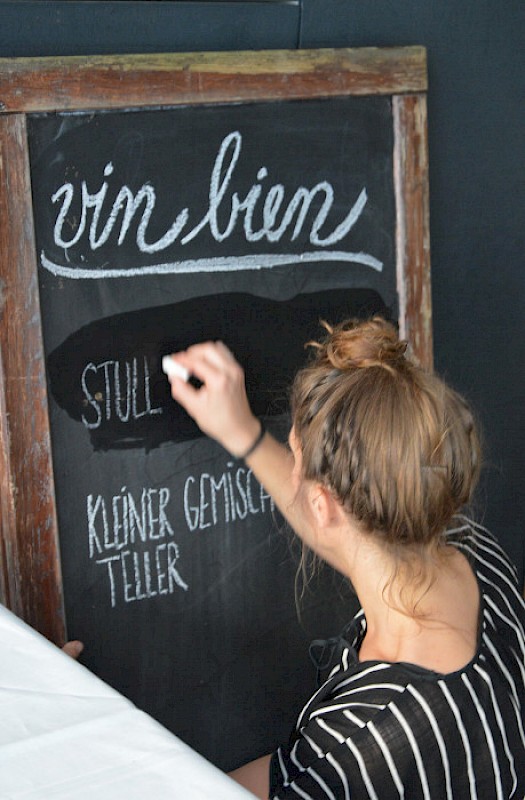 vin bien
STULL
KLEINER GEMISCH
TELLER